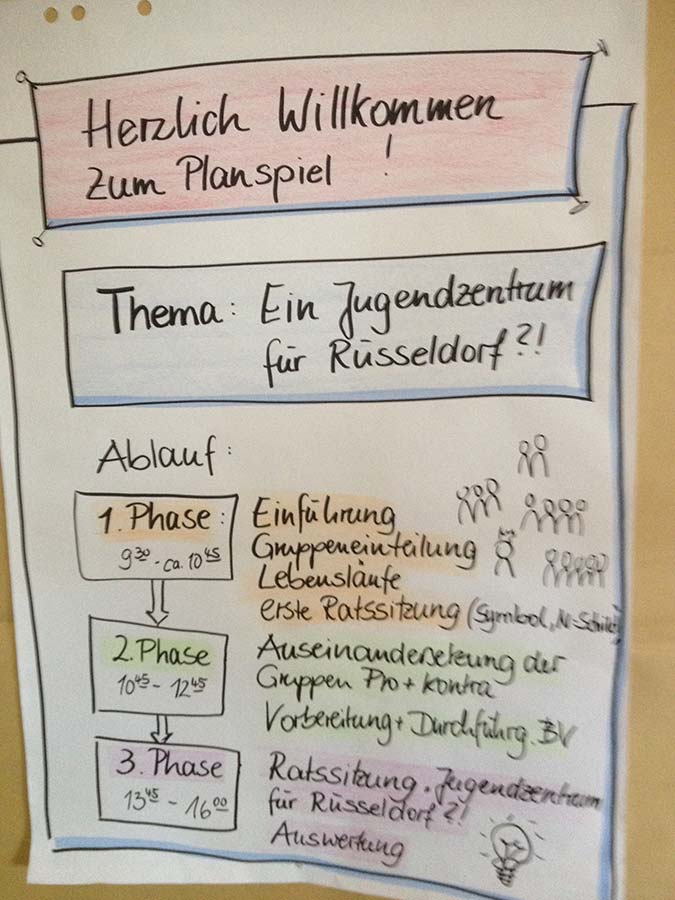 Herzlich Willkommen
zum Planspiel !
Thema: Ein Jugendzentrum
für Rüsseldorf?!
Ablauf:
1. Phase:
9³⁰ - ca. 10⁴⁵
Einführung
Gruppeneinteilung
Lebensläufe
erste Ratssitzung (Symbol, N-Schild)
2. Phase
10⁴⁵ - 12⁴⁵
Auseinandersetzung der
Gruppen Pro + Kontra
Vorbereitung + Durchführg. BV
3. Phase
13⁴⁵ - 16⁰⁰
Ratssitzung. Jugendzentrum
für Rüsseldorf?!
Auswertung